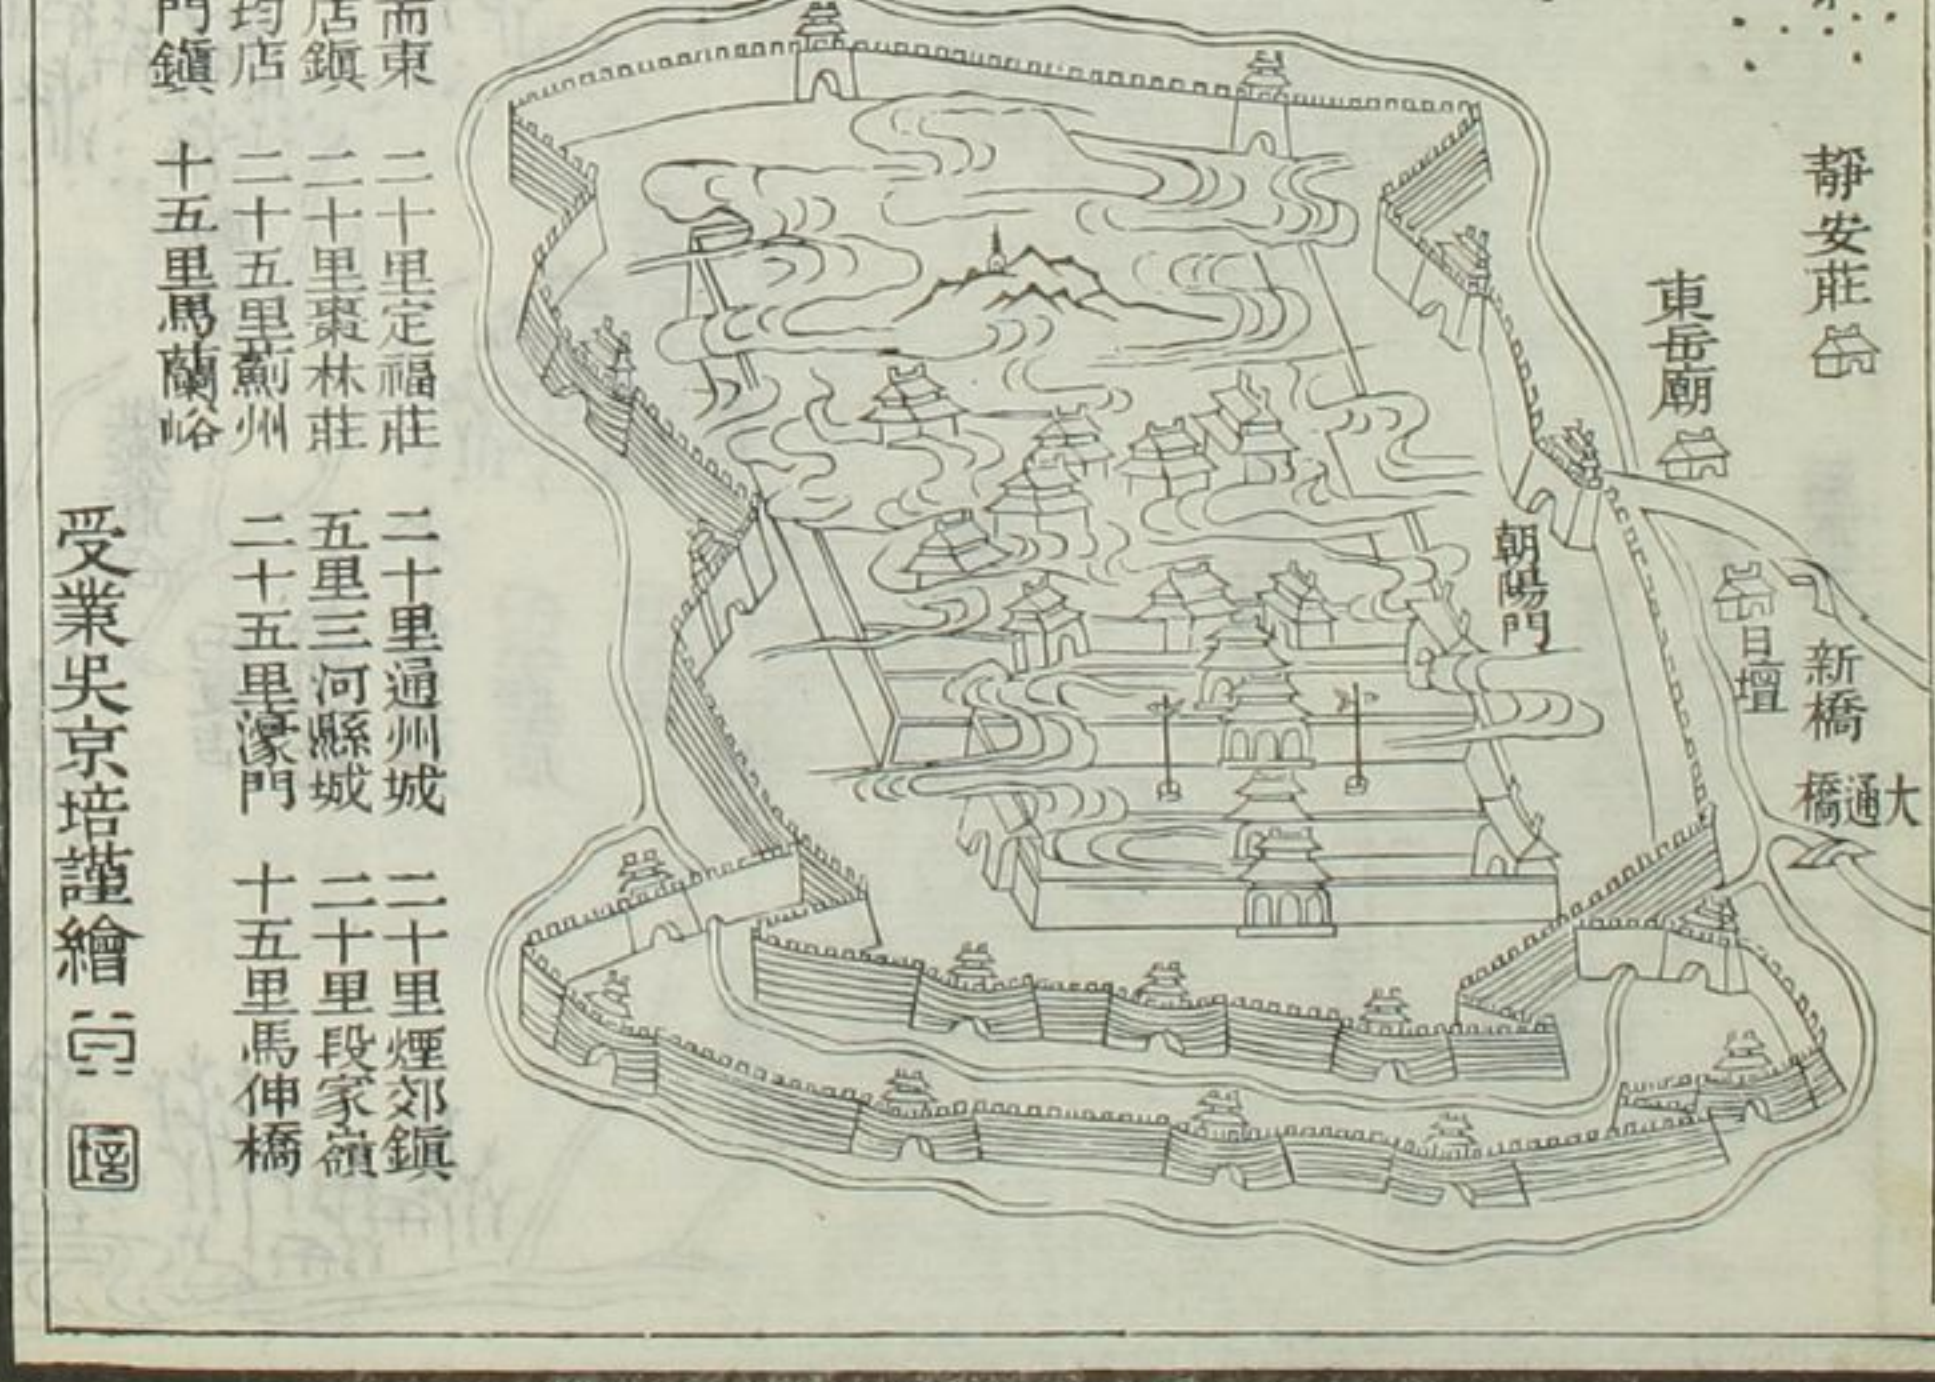 靜安莊
東岳廟
朝陽門
日壇
新橋
大通橋
而東　二十里定福莊　二十里通州城　二十里煙郊鎮
店鎮　二十里棗林莊　五里三河縣城　二十里段家嶺
均店　二十五里薊州　二十五里濠門　十五里馬伸橋
門鎮　十五里馬蘭峪
受業吳京培謹繪
培